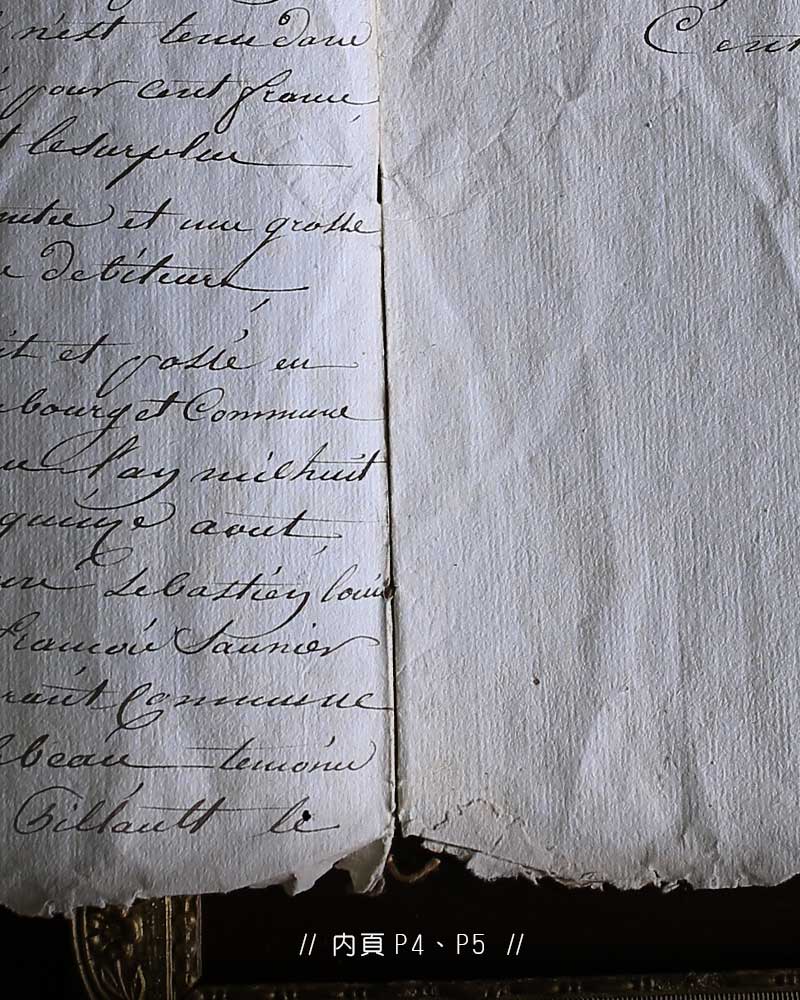 n'est tenu dans
pour cent francs
et le surplus
minute et une grosse
debiteurs
et passé en
bourg et Commune
l'an mil huit
quinze aout
Sebastien louis
francois Saunier
Commune
temoins
Billault le
Cent
// 內頁 P4、P5 //